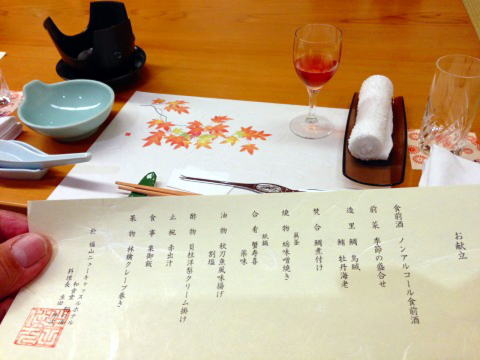 お献立
食前酒 ノンアルコール食前酒
前菜 季節の盛合せ
造里 鯛 烏賊
鮪 牡丹海老
焚合 鯛煮付け
蕪釜
焼物 鰆味噌焼き
紙鍋
合肴 蟹寿喜
薬味
油物 秋刀魚風味揚げ
割塩
酢物 貝柱洋梨クリーム掛け
止椀 赤出汁
食事 栗御飯
果物 林檎クレープ巻き
於 福山ニューキャッスルホテル
和食堂
料理長